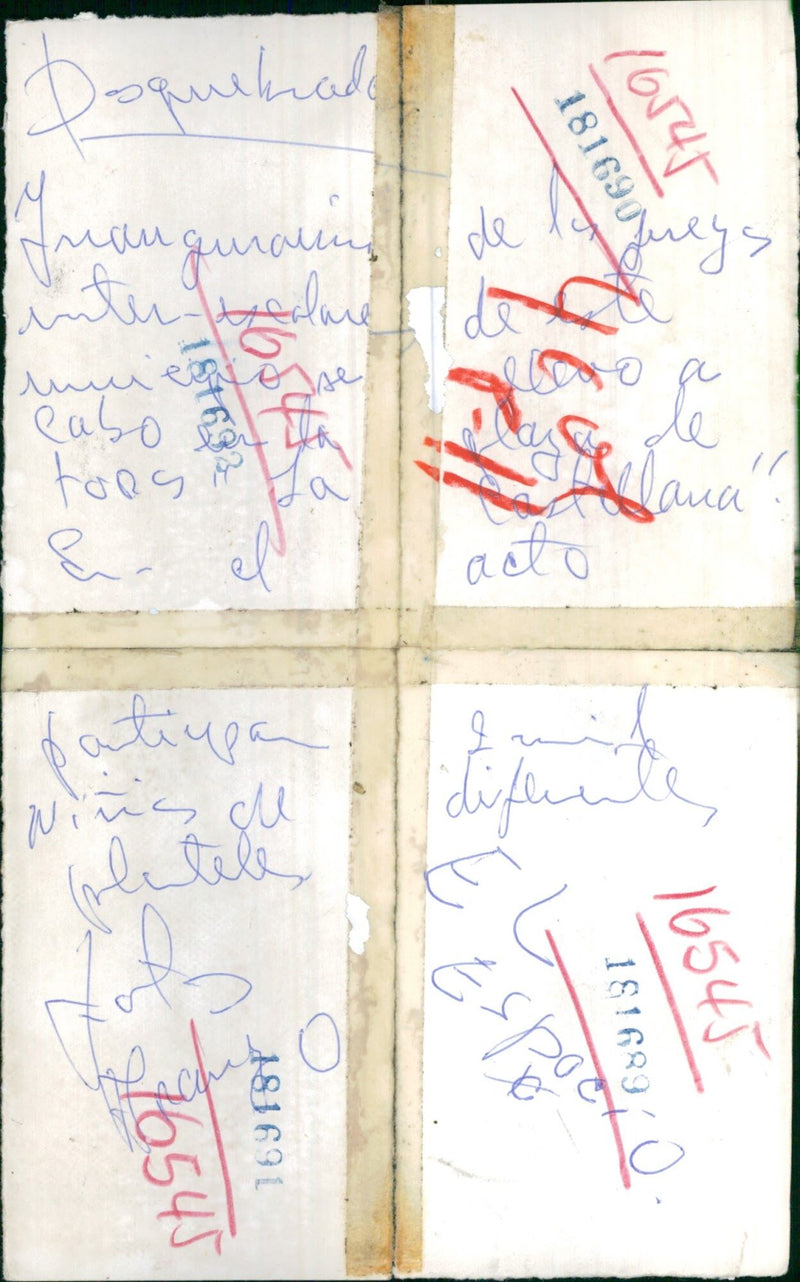 Dosquebrada
Inauguracion de los juegos
inter-escolare de este
municipio se llevo a
cabo en la plaza de
toros "La Castellana".
En el acto
participan 2 mil
niñas de diferentes
planteles
Foto
16545
181690
16545
181692
16545
181689
16545
181691